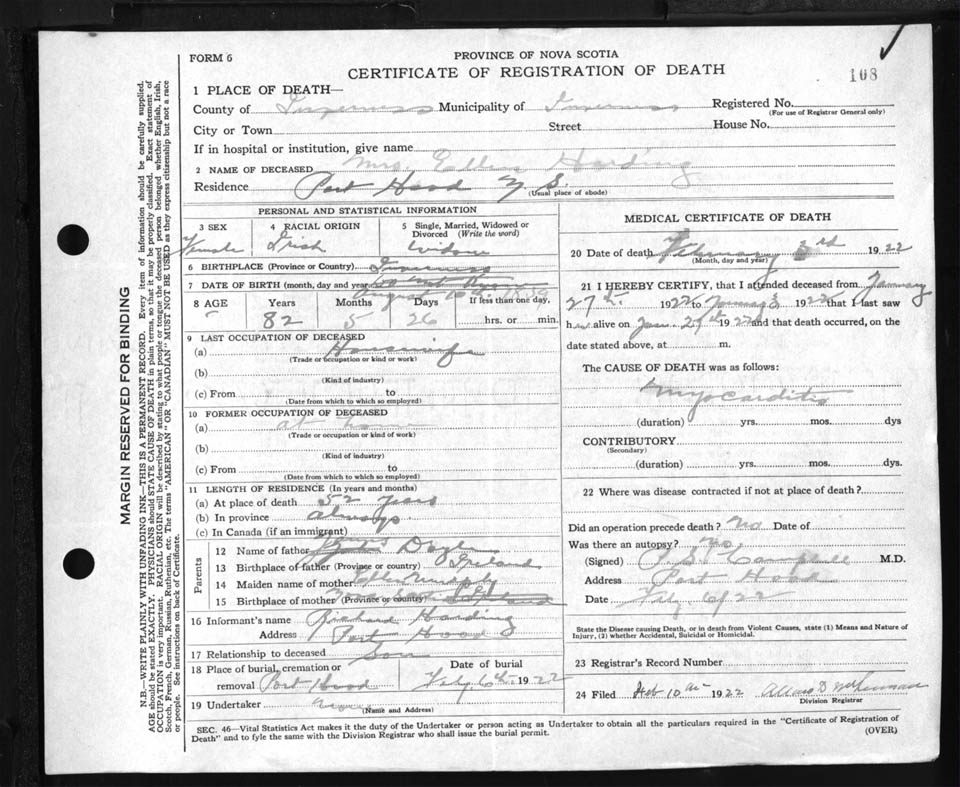 FORM 6
PROVINCE OF NOVA SCOTIA
CERTIFICATE OF REGISTRATION OF DEATH
108
1 PLACE OF DEATH—
County of Inverness Municipality of Inverness Registered No.
(For use of Registrar General only)
City or Town Street House No.
If in hospital or institution, give name
2 NAME OF DECEASED Mrs. Ellen Harding
Residence Port Hood N. S.
(Usual place of abode)
PERSONAL AND STATISTICAL INFORMATION
3 SEX 4 RACIAL ORIGIN 5 Single, Married, Widowed or Divorced (Write the word)
Female Irish Widow
6 BIRTHPLACE (Province or Country) Inverness
7 DATE OF BIRTH (month, day and year)
August 10th 1839
8 AGE Years Months Days If less than one day,
82 5 26 hrs. or min.
9 LAST OCCUPATION OF DECEASED
(a) Housewife
(Trade or occupation or kind or work)
(b)
(Kind of industry)
(c) From to
(Date from which to which so employed)
10 FORMER OCCUPATION OF DECEASED
(a) at home
(Trade or occupation or kind of work)
(b)
(Kind of industry)
(c) From to
(Date from which to which so employed)
11 LENGTH OF RESIDENCE (In years and months)
(a) At place of death 52 years
(b) In province always
(c) In Canada (if an immigrant)
Parents
12 Name of father Doyle
13 Birthplace of father (Province or country) Ireland
14 Maiden name of mother Ellen Murphy
15 Birthplace of mother (Province or country)
16 Informant's name Richard Harding
Address Port Hood
17 Relationship to deceased Son
18 Place of burial, cremation or removal Port Hood Date of burial Feby. 6th. 1922
19 Undertaker
(Name and Address)
MEDICAL CERTIFICATE OF DEATH
20 Date of death February 3rd 1922
(Month, day and year)
21 I HEREBY CERTIFY, that I attended deceased from January
27th. 1922 to 1922 that I last saw
her alive on Jan. 29th 1922 and that death occurred, on the
date stated above, at m.
The CAUSE OF DEATH was as follows:
Myocarditis
(duration) yrs. mos. dys
CONTRIBUTORY
(Secondary)
(duration) yrs. mos. dys.
22 Where was disease contracted if not at place of death?
Did an operation precede death? No Date of
Was there an autopsy? No
(Signed) Campbell M.D.
Address Port Hood
Date Feby 6/22
State the Disease causing Death, or in death from Violent Causes, state (1) Means and Nature of
Injury, (2) whether Accidental, Suicidal or Homicidal.
23 Registrar's Record Number
24 Filed Feb 10th 1922
Division Registrar
SEC. 46—Vital Statistics Act makes it the duty of the Undertaker or person acting as Undertaker to obtain all the particulars required in the "Certificate of Registration of
Death" and to fyle the same with the Division Registrar who shall issue the burial permit.
(OVER)
MARGIN RESERVED FOR BINDING
N.B.—WRITE PLAINLY WITH UNFADING INK—THIS IS A PERMANENT RECORD. Every item of information should be carefully supplied.
AGE should be stated EXACTLY. PHYSICIANS should STATE CAUSE OF DEATH in plain terms, so that it may be properly classified. Exact statement of
OCCUPATION is very important. RACIAL ORIGIN will be described by stating to what people or tongue the deceased person belonged whether English, Irish,
Scotch, French, German, Russian, Ruthenian, etc. The terms "AMERICAN" OR "CANADIAN" MUST NOT BE USED as they express citizenship but not a race
or people. See instructions on back of Certificate.